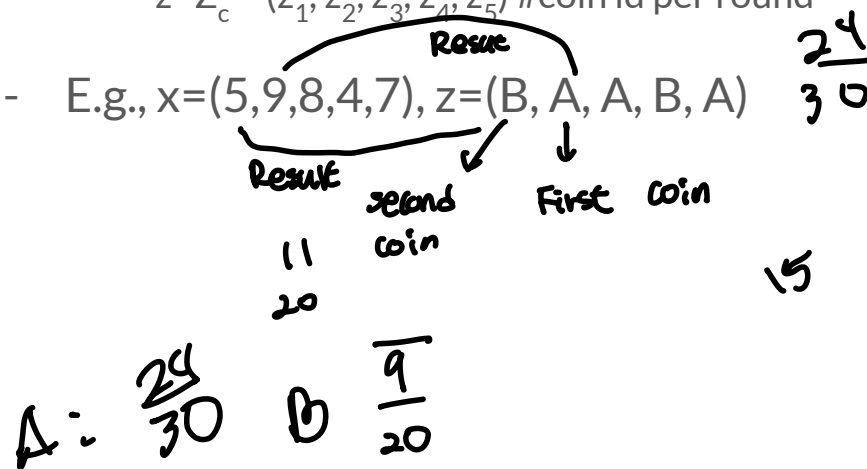 z=Z_c = (z_1, z_2, z_3, z_4, z_5) #coin id per round
Result
24
30
- E.g., x=(5,9,8,4,7), z=(B, A, A, B, A)
Result
second
coin
First coin
11
20
15
A: 24
30
B 9
20